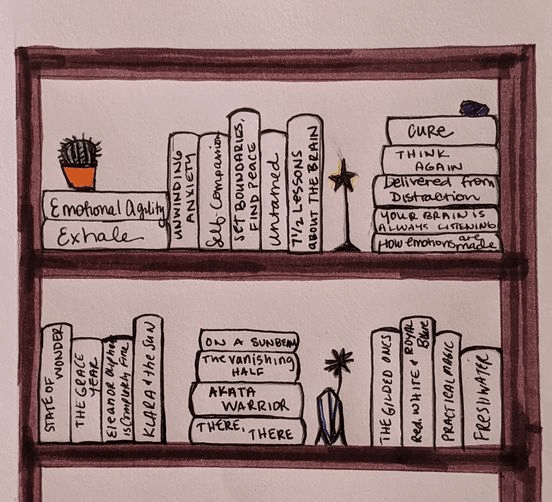 Emotional Agility
Exhale
UNWINDING
ANXIETY
Self Compassion
SET BOUNDARIES,
FIND PEACE
Untamed
7 1/2 LESSONS
ABOUT THE BRAIN
CURE
THINK
AGAIN
Delivered from
Distraction
YOUR BRAIN IS
ALWAYS LISTENING
How emotions are
made
STATE OF
WONDER
THE GRACE
YEAR
Eleanor Oliphant
is Completely Fine
KLARA & the SUN
ON A SUNBEAM
The vanishing
HALF
AKATA
WARRIOR
THERE,
THERE
THE GILDED ONES
Red, WHITE & ROYAL
Blue
PRACTICAL MAGIC
FRESHWATER